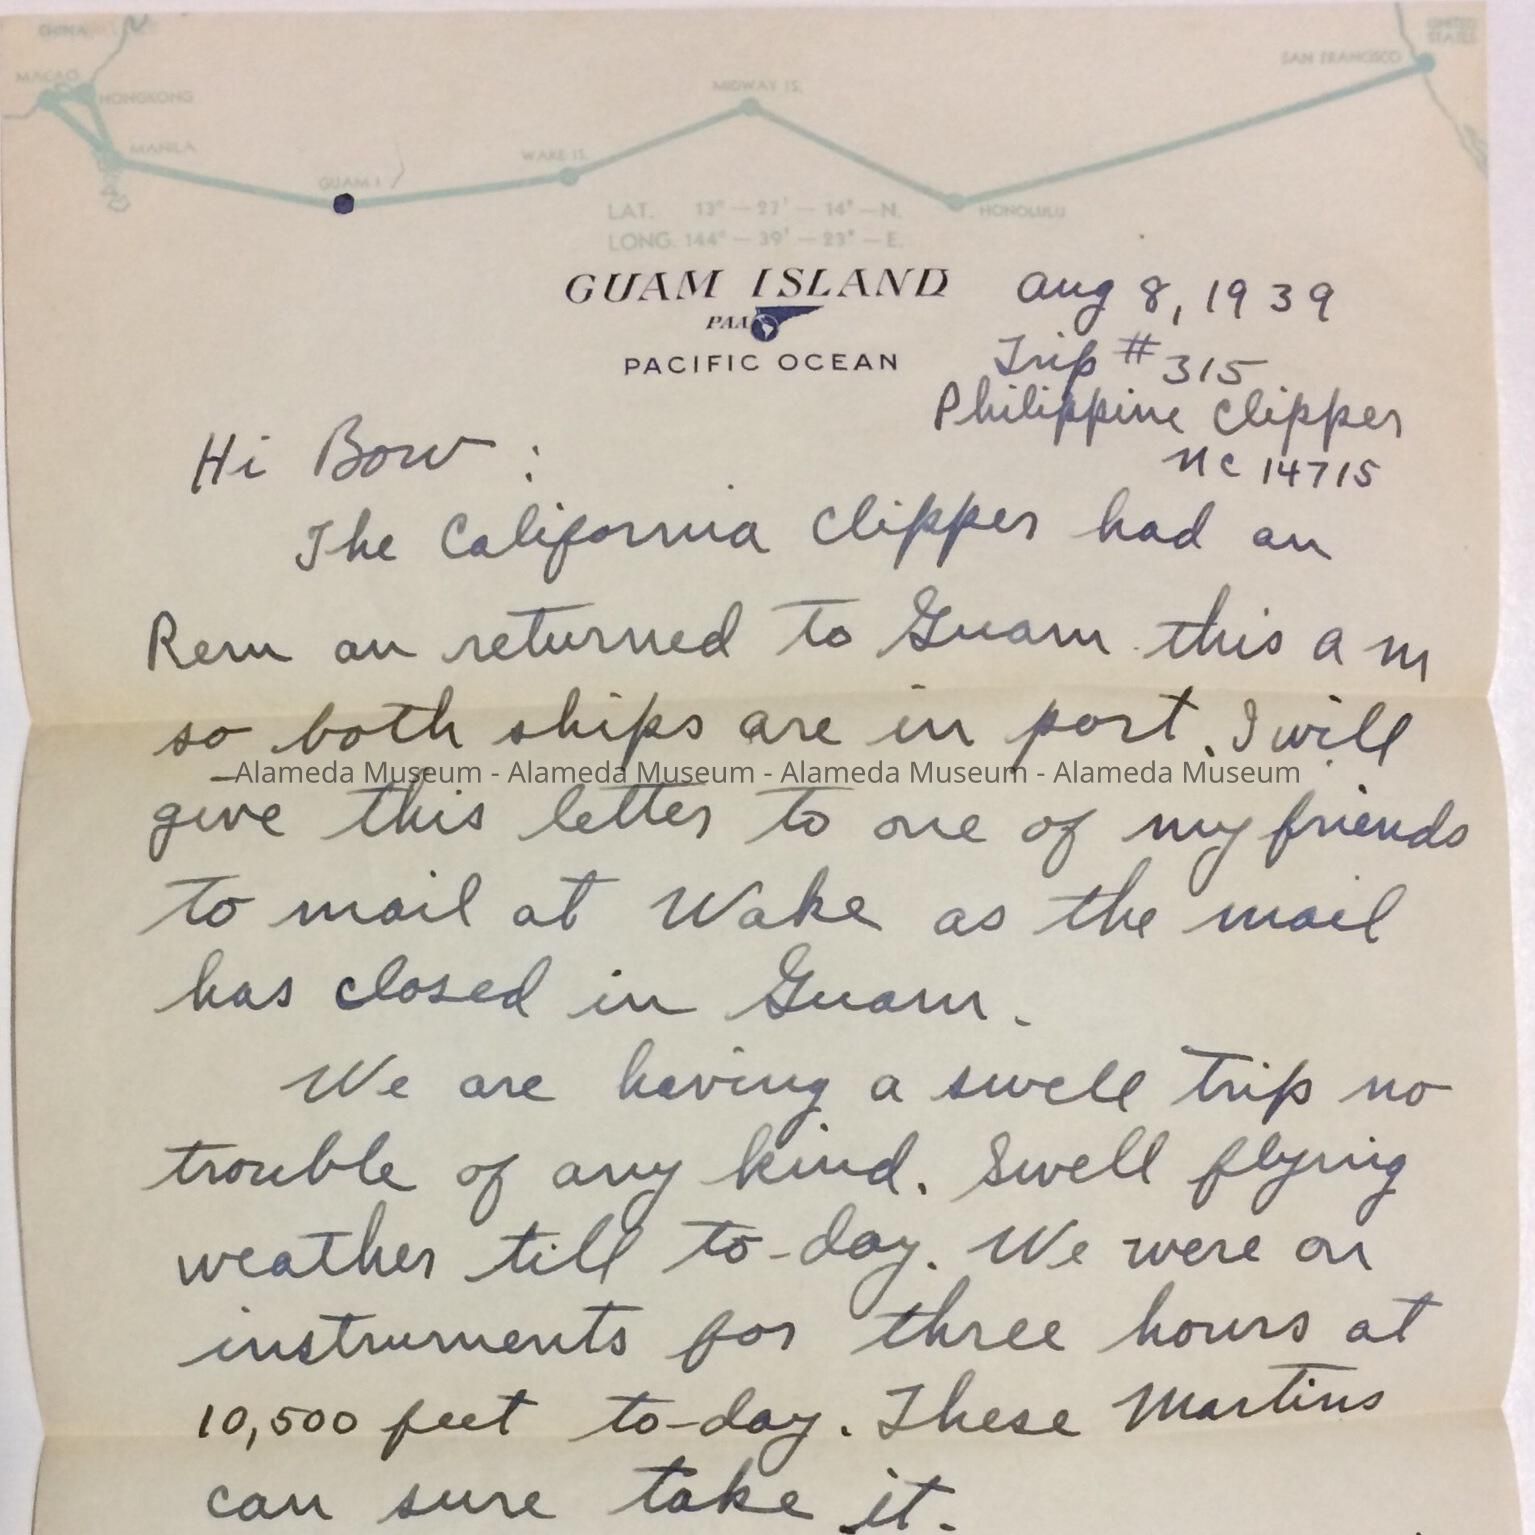 CHINA
UNITED
STATES
SAN FRANCISCO
MACAO
HONGKONG
MIDWAY IS.
MANILA
WAKE IS.
GUAM I
HONOLULU
LAT. 13° — 27' — 14" — N.
LONG. 144° — 39' — 23" — E.
GUAM ISLAND
PAA
PACIFIC OCEAN
Aug 8, 1939
Trip # 315
Philippine Clipper
NC 14715
Hi Bow :
The California Clipper had an
Rem an returned to Guam this a m
so both ships are in port. I will
Alameda Museum - Alameda Museum - Alameda Museum - Alameda Museum
give this letter to one of my friends
to mail at Wake as the mail
has closed in Guam.
We are having a swell trip no
trouble of any kind. Swell flying
weather till to-day. We were on
instruments for three hours at
10,500 feet to-day. These Martins
can sure take it.